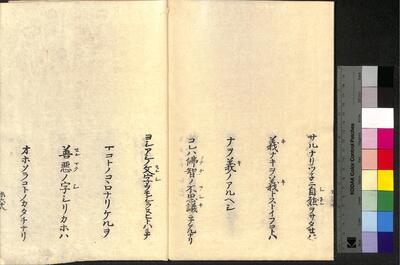 サルナリツネニ自然ヲサタセハ
義ナキヲ義トストイフコトハ
ナヲ義ノアルヘシ
コレハ佛智ノ不思議ニテアルナリ
ヨシアシノ文字ヲモシラヌヒトハミナ
マコトノコヽロナリケルヲ
善悪ノ字シリカホハ
オホソラコトノカタチナリ